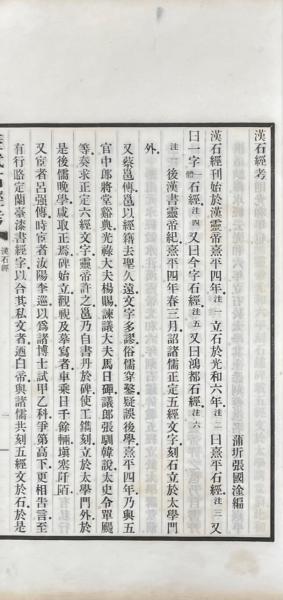 漢石經考
蒲圻張國淦編
漢石經刊始於漢靈帝熹平四年注一立石於光和六年注二曰熹平石經注三又
曰一字一體石經注四又曰今字石經注五又曰鴻都石經注六
注一後漢書靈帝紀熹平四年春三月詔諸儒正定五經文字刻石立於太學門
外
又蔡邕傳邕以經籍去聖久遠文字多謬俗儒穿鑿疑誤後學熹平四年乃與五
官中郎將堂谿典光祿大夫楊賜諫議大夫馬日磾議郎張馴韓說太史令單颺
等奏求正定六經文字靈帝許之邕乃自書丹於碑使工鐫刻立於太學門外於
是後儒晚學咸取正焉碑始立觀視及摹寫者車乘日千餘輛塡塞阡陌
又宦者呂强傳時宦者汝陽李巡以爲諸博士試甲乙科爭第高下更相告言至
有行賂定蘭臺漆書經字以合其私文者迺白帝與諸儒共刻五經文於石於是
漢石經
一